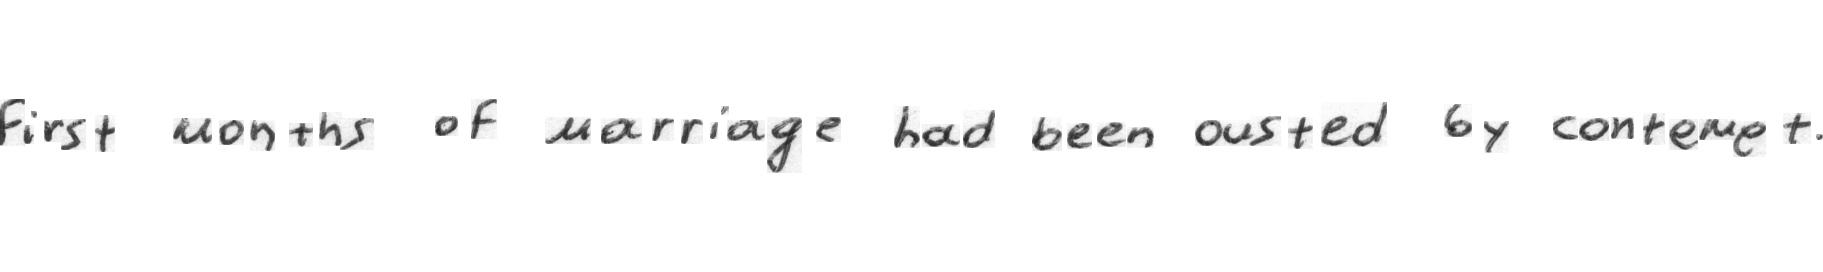 first months of marriage had been ousted by contempt.